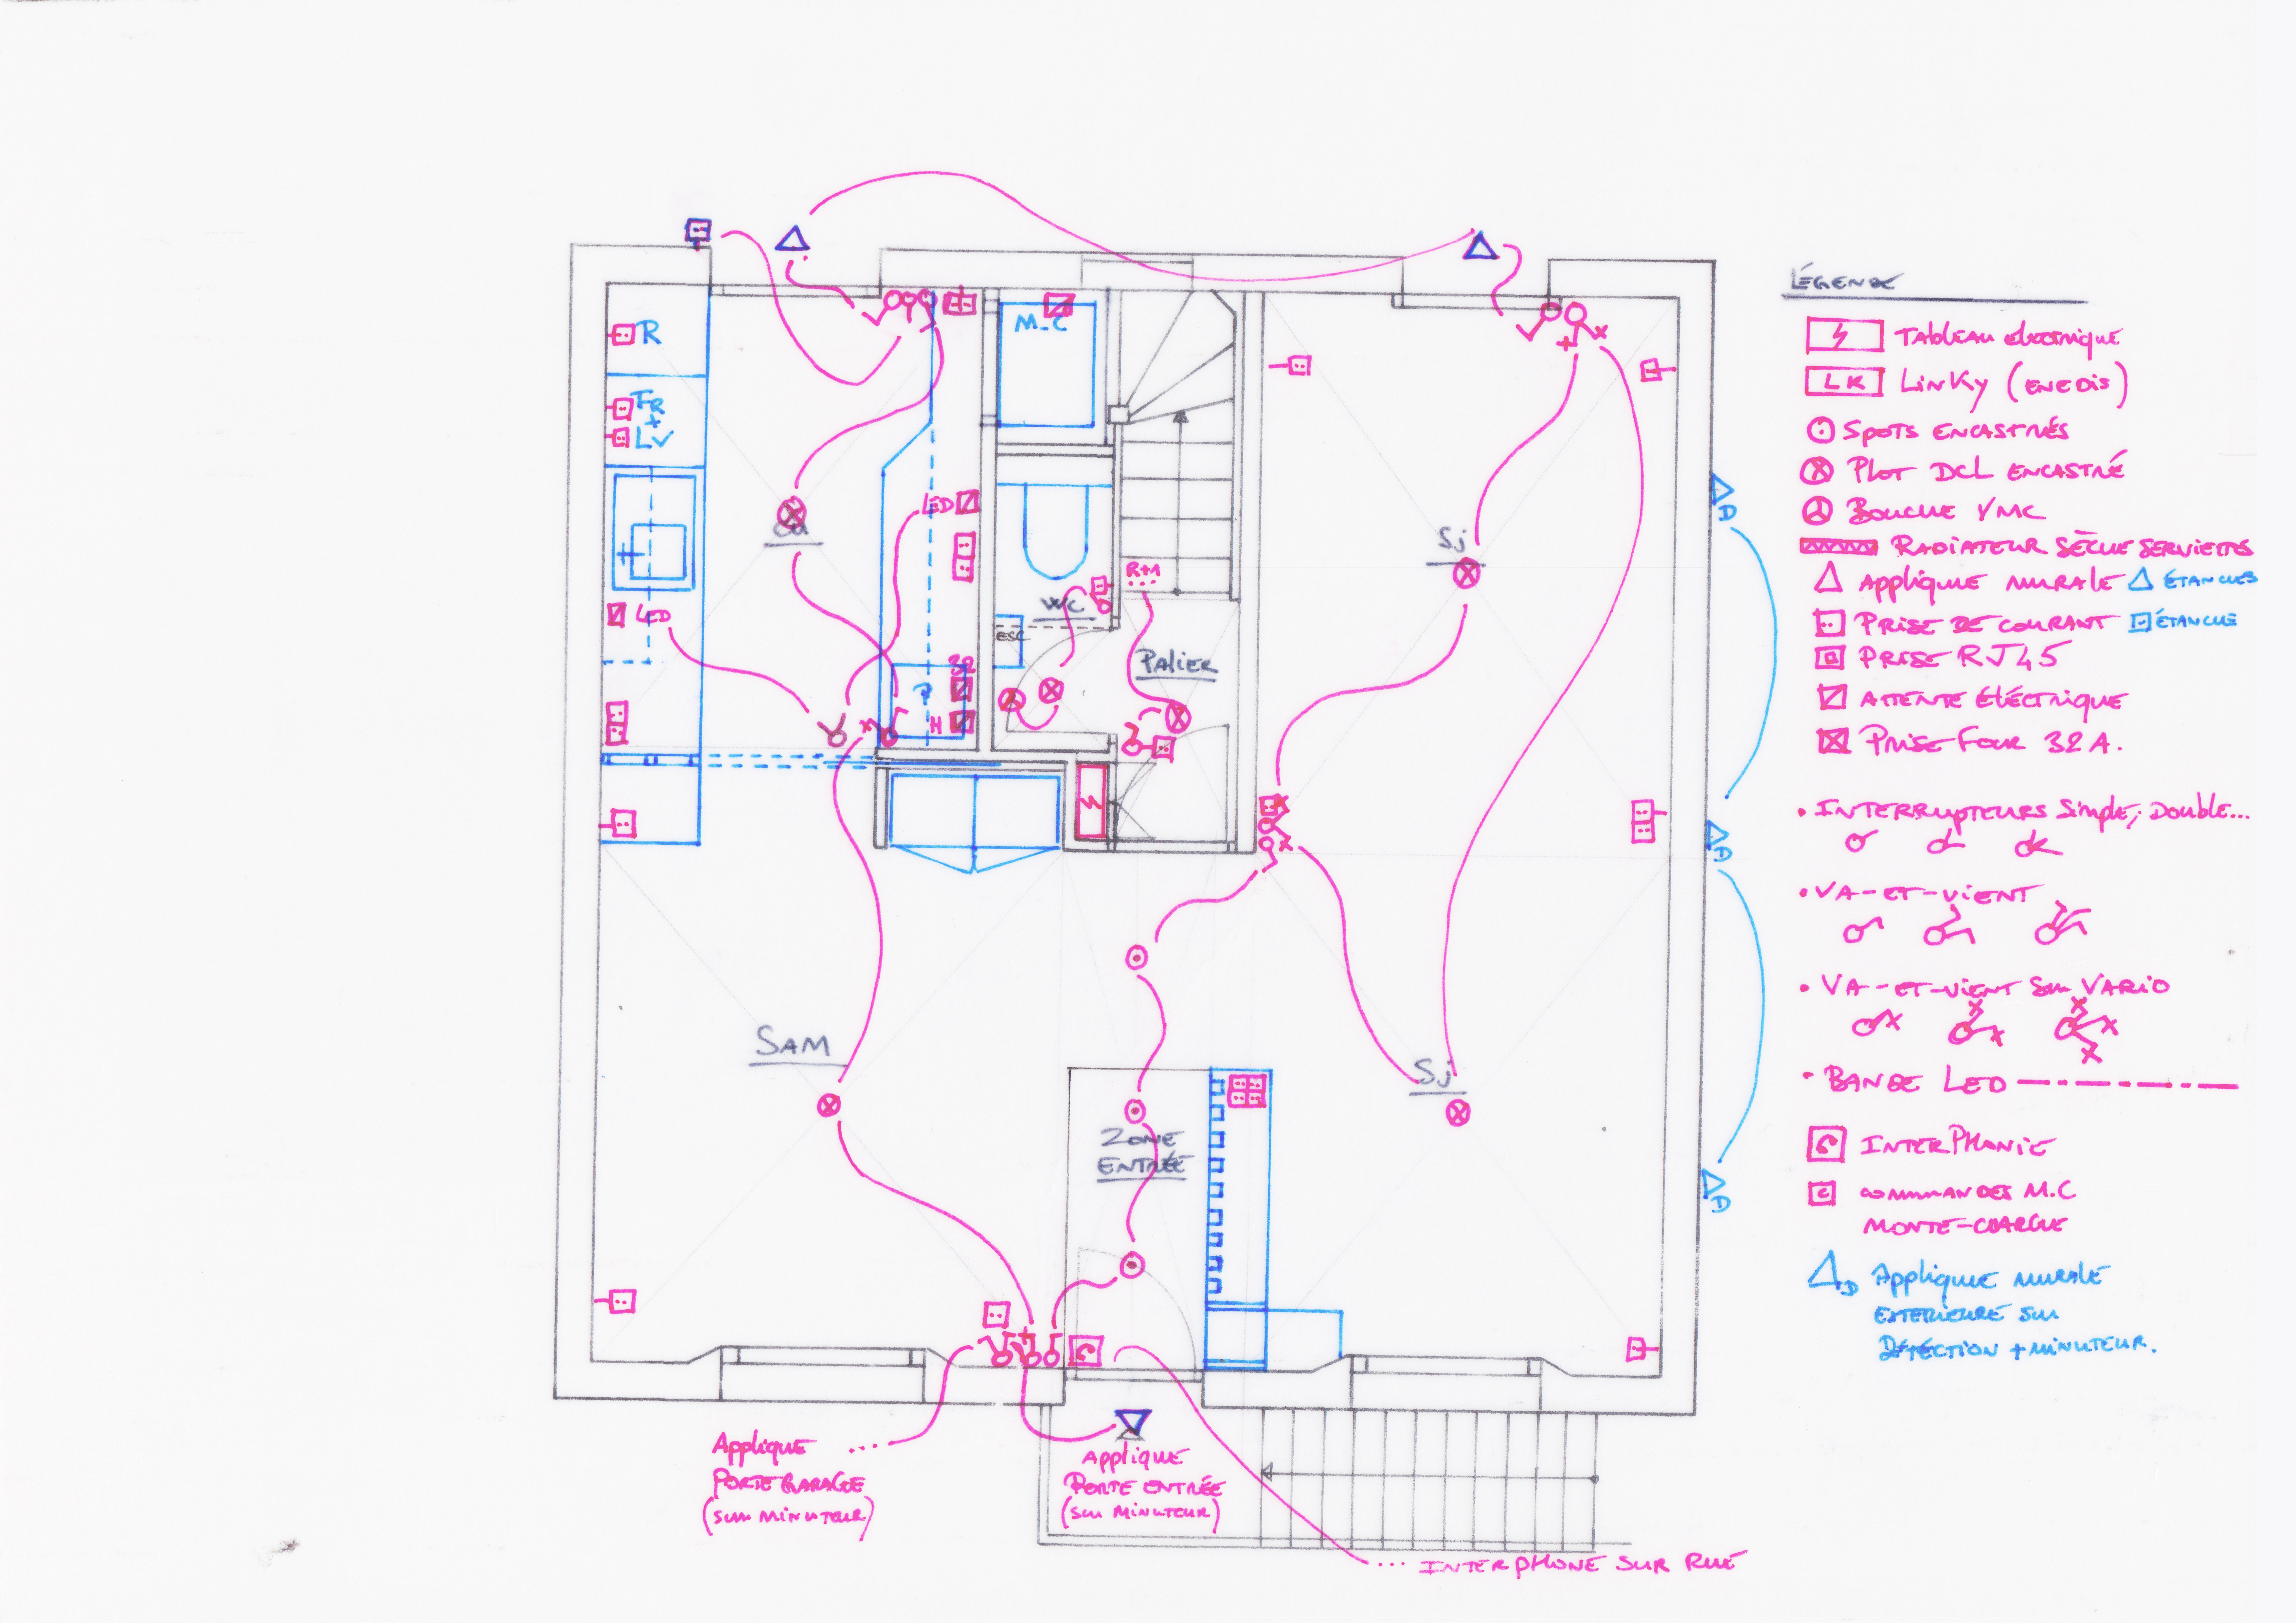 LÉGENDE
Tableau électrique
LK LINKY (ENEDIS)
SPOTS ENCASTRÉS
PLOT DCL ENCASTRÉ
BOUCHE VMC
RADIATEUR SÈCHE SERVIETTES
APPLIQUE MURALE ÉTANCHES
PRISE DE COURANT ÉTANCHE
PRISE RJ45
ATTENTE ÉLÉCTRIQUE
PRISE FOUR 32 A.
• INTERRUPTEURS Simple, Double...
• VA-ET-VIENT
• VA-ET-VIENT SUR VARIO
• BANDE LED
INTERPHONIE
COMMANDES M.C
MONTE-CHARGE
D APPLIQUE MURALE
EXTERIEURE SUR
DÉTÉCTION + MINUTEUR.
R
FR
+
LV
LED
CU
LED
32
H
M-C
WC
ESC
R+1
PALIER
Sj
Sj
D
D
D
SAM
ZONE
ENTRÉE
Applique
PORTE GARAGE
(SUR MINUTEUR)
Applique
PORTE ENTRÉE
(SUR MINUTEUR)
... INTERPHONE SUR RUE